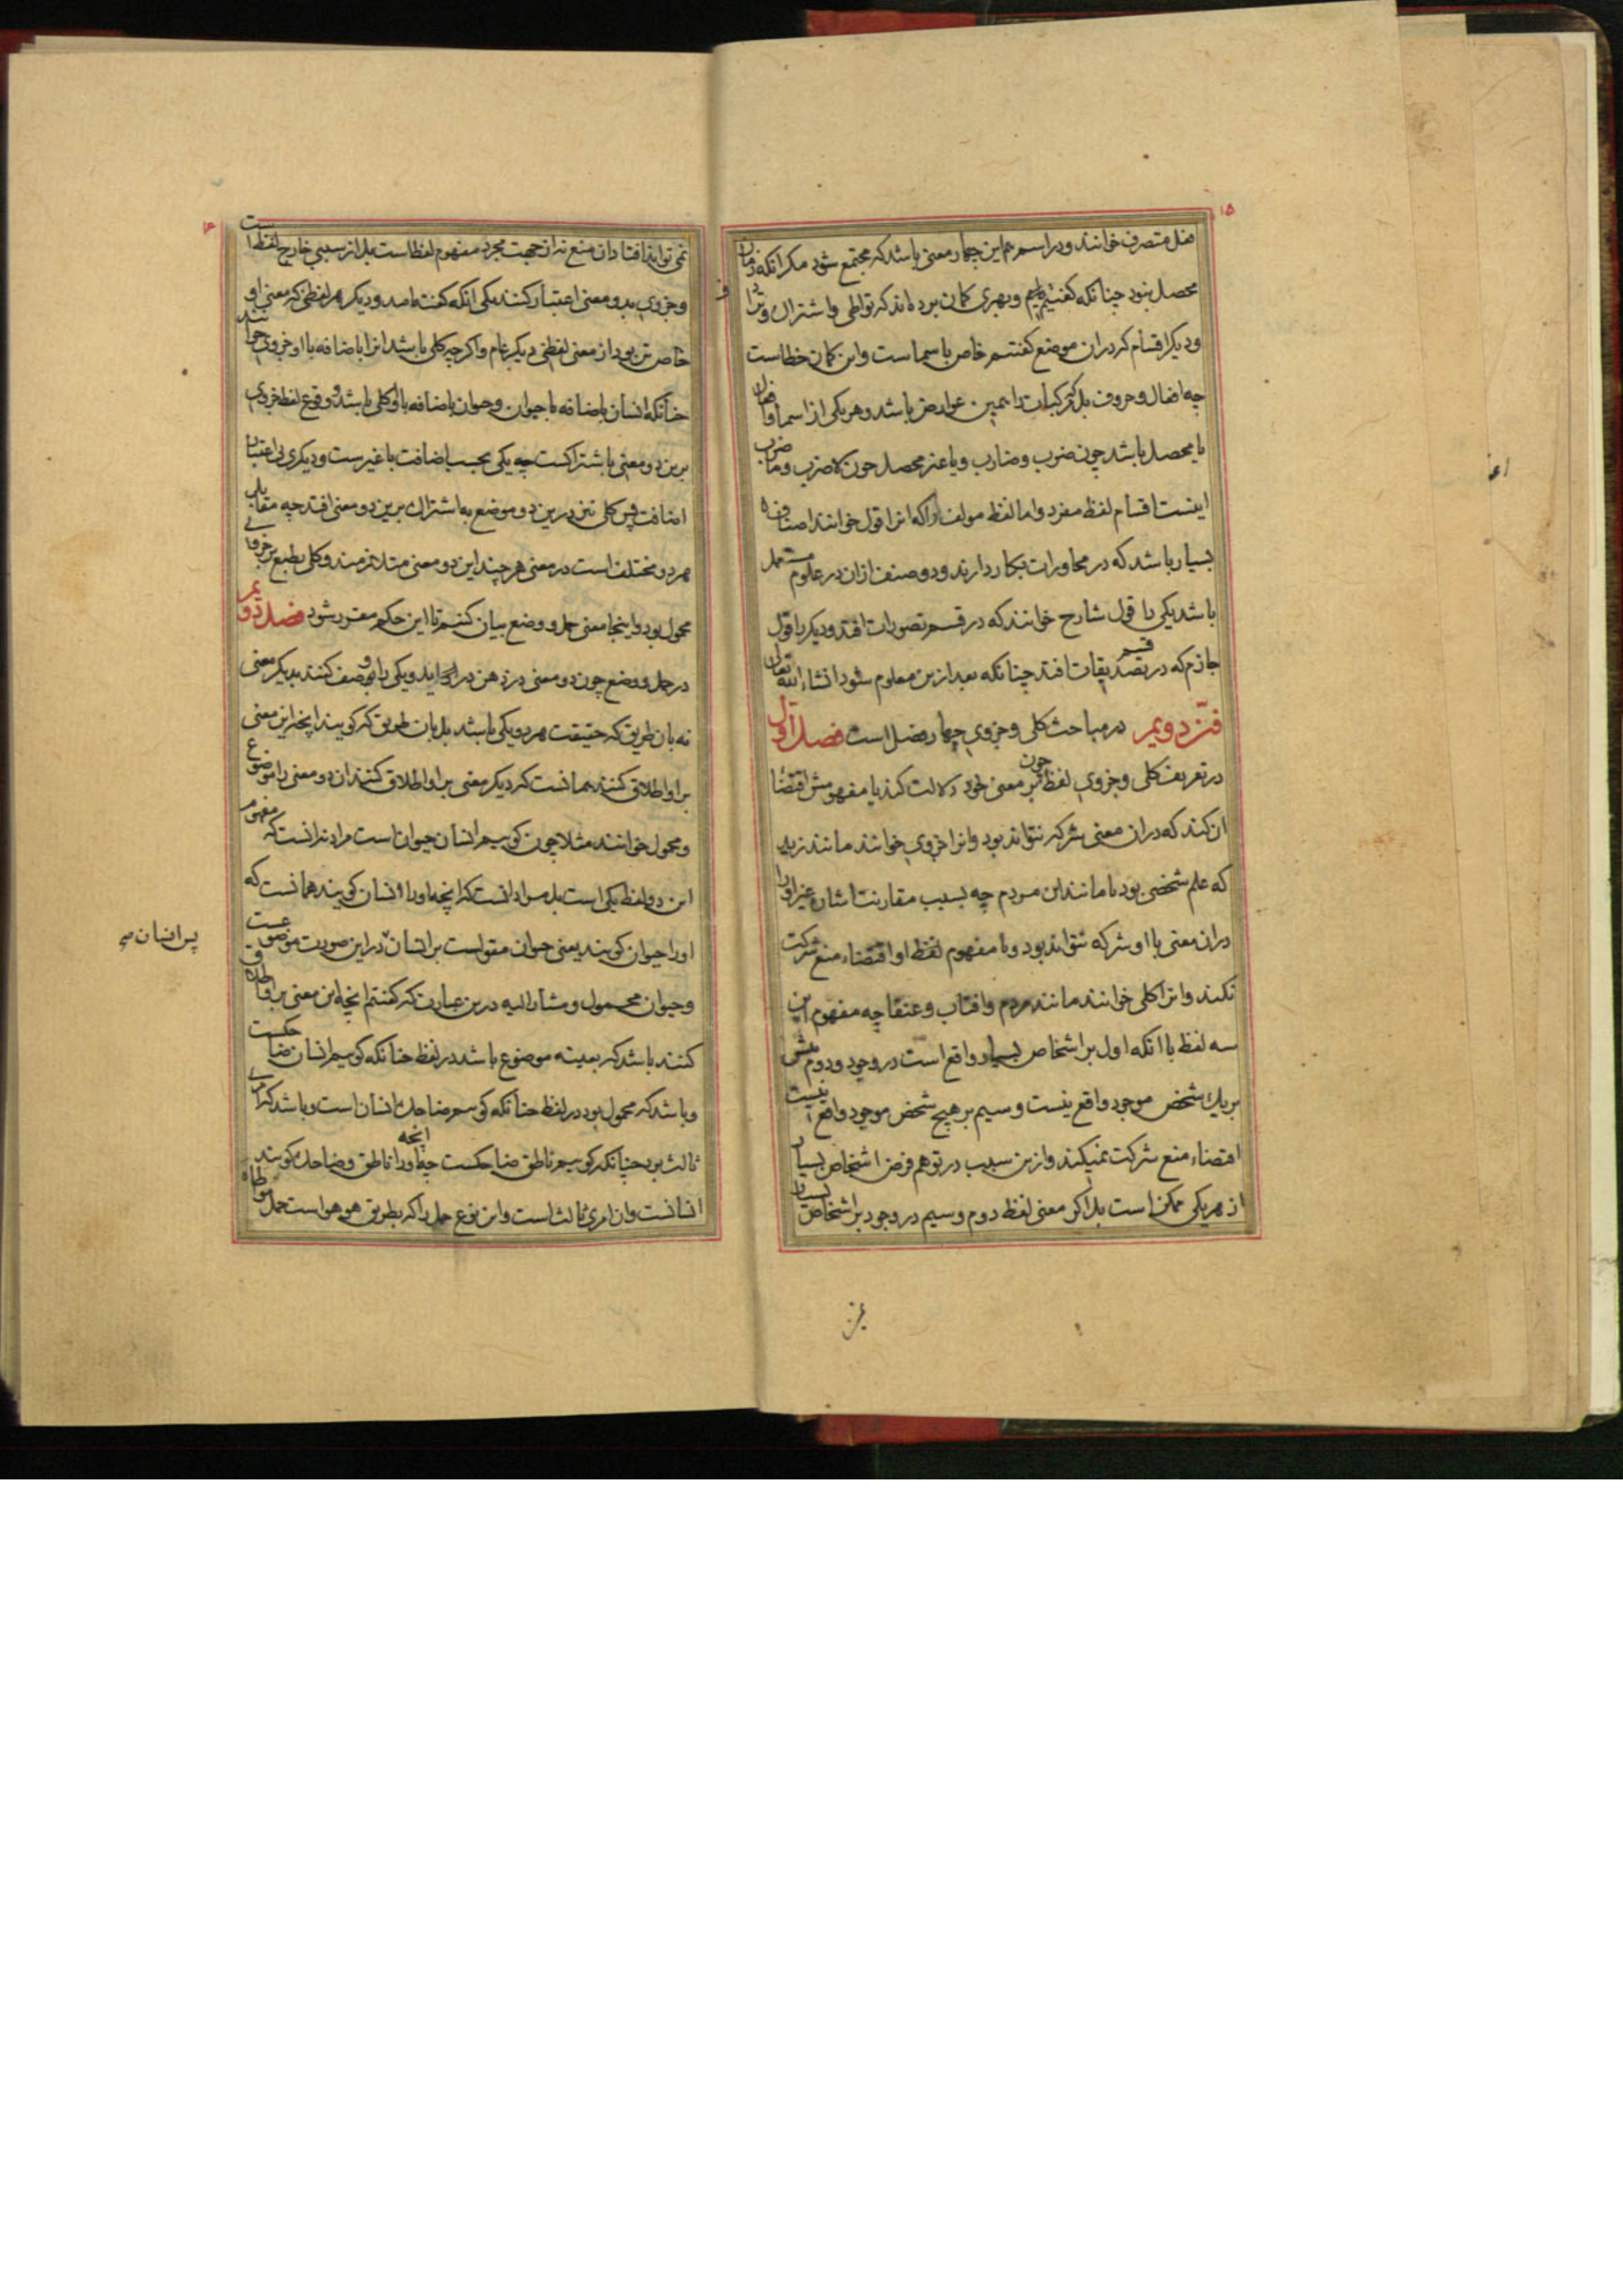 فعل متصرف خوانند و در اسم هم این چهار معنی باشد که مجتمع شود مکر انکه زمان
محصل نبود چنانکه کفتیم و بهری کمان برده اند که تواطی و اشتراک و ترادف
و دیکر اقسام که در ان موضع کفتیم خاص باسماست و این کمان خطاست
چه افعال و حروف بل مرکبات را همین عوارض باشد و هر یکی از اسما و افعال
یا محصل باشد چون ضرب و ضارب و یا غیر محصل چون لا ضرب و ما ضرب
اینست اقسام لفظ مفرد و اما لفظ مولف را که انرا قول خوانند اصناف
بسیار باشد که در محاورات بکار دارند و دو صنف ازان در علوم مستعمل
باشد یکی را قول شارح خوانند که در قسم تصورات افتد و دیکر را قول
جازم که در قسم تصدیقات افتد چنانکه بعد ازین معلوم شود انشاء الله تعالی
فن دویم در مباحث کلی و جزوی چهار فصل است فصل اول
در تعریف کلی و جزوی لفظ چون بر معنی خود دلالت کند یا مفهومش اقتضا
ان کند که در ان معنی شرکه نتواند بود و انرا جزوی خوانند مانند زید
که علم شخصی بود یا مانند این مردم چه بسبب مقارنت اشارت غیر او را
دران معنی با او شرکه نتواند بود و یا مفهوم لفظ او اقتضاء منع شرکت
نکند و انرا کلی خوانند مانند مردم و افتاب و عنقا چه مفهوم این
سه لفظ با انکه اول بر اشخاص بسیار واقع است در وجود و دوم بیش
بر یک شخص موجود واقع نیست و سیم بر هیچ شخص موجود واقع نیست
اقتضاء منع شرکت نمیکند و ازین سبب در توهم فرض اشخاص بسیار
از هر یکی ممکن است بل اکر معنی لفظ دوم و سیم در وجود بر اشخاص بسیار
نمی تواند افتاد ان منع نه ازجهت مجرد مفهوم لفظ است بل از سببی خارج لفظ است
و جزوی بدو معنی اعتبار کنند یکی انکه کفته امد و دیکر هر لفظی که معنی او
خاص تر بود از معنی لفظی دیکر عام و اکر چه کلی باشد انرا باضافه با او جزوی خوانند
چنانکه انسان باضافه با حیوان و حیوان باضافه با او کلی باشد و وقوع لفظ جزوی
برین دو معنی باشتراکست چه یکی بحسب اضافت با غیرست و دیکری بی اعتبار
اضافت پس کلی نیز درین دو موضع به اشتراک برین دو معنی افتد چه مقابل
هر دو مختلف است در معنی هر چند این دو معنی متلازمند و کلی بطبع بر جزوی
محمول بود و اینجا معنی حمل و وضع بیان کنیم تا این حکم مقرر شود فصل دویم
در حمل و وضع چون دو معنی در ذهن در اید و یکی را وصف کنند بدیکر معنی
نه بان طریق که حقیقت هر دو یکی باشد بل بان طریق که کویند انچه این معنی
بر او اطلاق کنند همانست که دیکر معنی بر او اطلاق کنند ان دو معنی را موضوع
و محمول خوانند مثلا چون کوییم انسان حیوان است مراد نه انست که مفهوم
این دو لفظ یکی است بل مراد انست که انچه او را انسان کویند همانست که
او را حیوان کویند یعنی حیوان مقولست بر انسان در این صورت موضوعست
و حیوان محمول و مشار الیه درین عبارت که کفتیم انچه این معنی بر او اطلاق
کنند باشد که بعینه موضوع باشد در لفظ چنانکه کوییم انسان ضاحکست
و باشد که محمول بود در لفظ چنانکه کوییم ضاحک انسان است و باشد که امری
ثالث بود چنانکه کوییم ناطق ضاحکست چه انچه او را ناطق و ضاحک کویند
انسانست و ان امری ثالث است و این نوع حمل را که بطریق هو هو است حمل مواطاة
پس انسان صح
۱۵